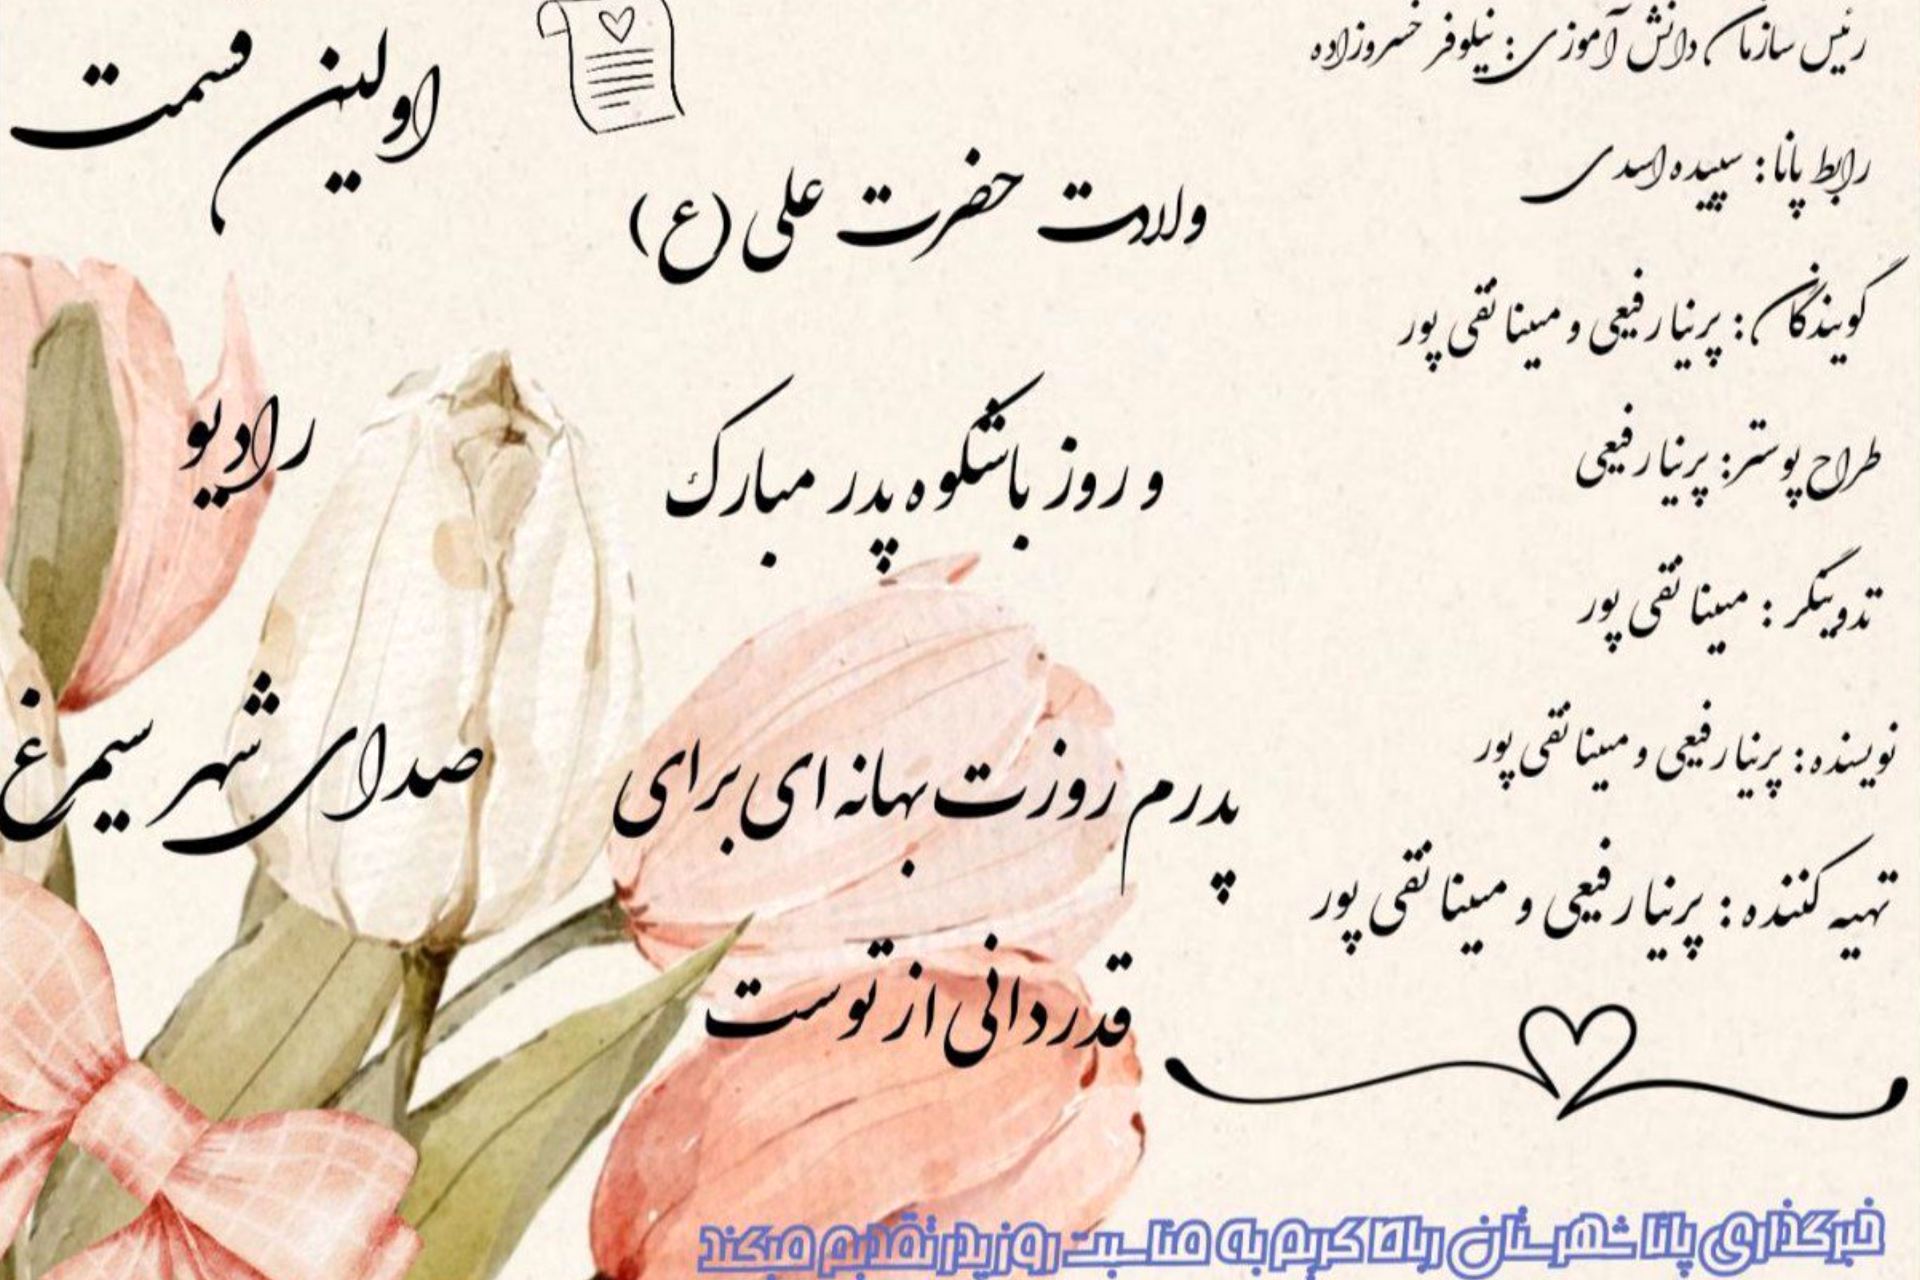 رئیس سازمان دانش آموزی : نیلوفر خسروزاده
رابط پانا : سپیده اسدی
گویندگان : پرنیا رفیعی و مبینا تقی پور
طراح پوستر: پرنیا رفیعی
تدوینگر : مبینا تقی پور
نویسنده : پرنیا رفیعی و مبینا تقی پور
تهیه کننده : پرنیا رفیعی و مبینا تقی پور
ولادت حضرت علی (ع)
و روز باشکوه پدر مبارک
پدرم روزت بهانه ای برای
قدردانی از توست
اولین قسمت
رادیو
صدای شهر سیمرغ
خبرگذاری پانا شهرستان رباط کریم به مناسبت روز پدر تقدیم میکند